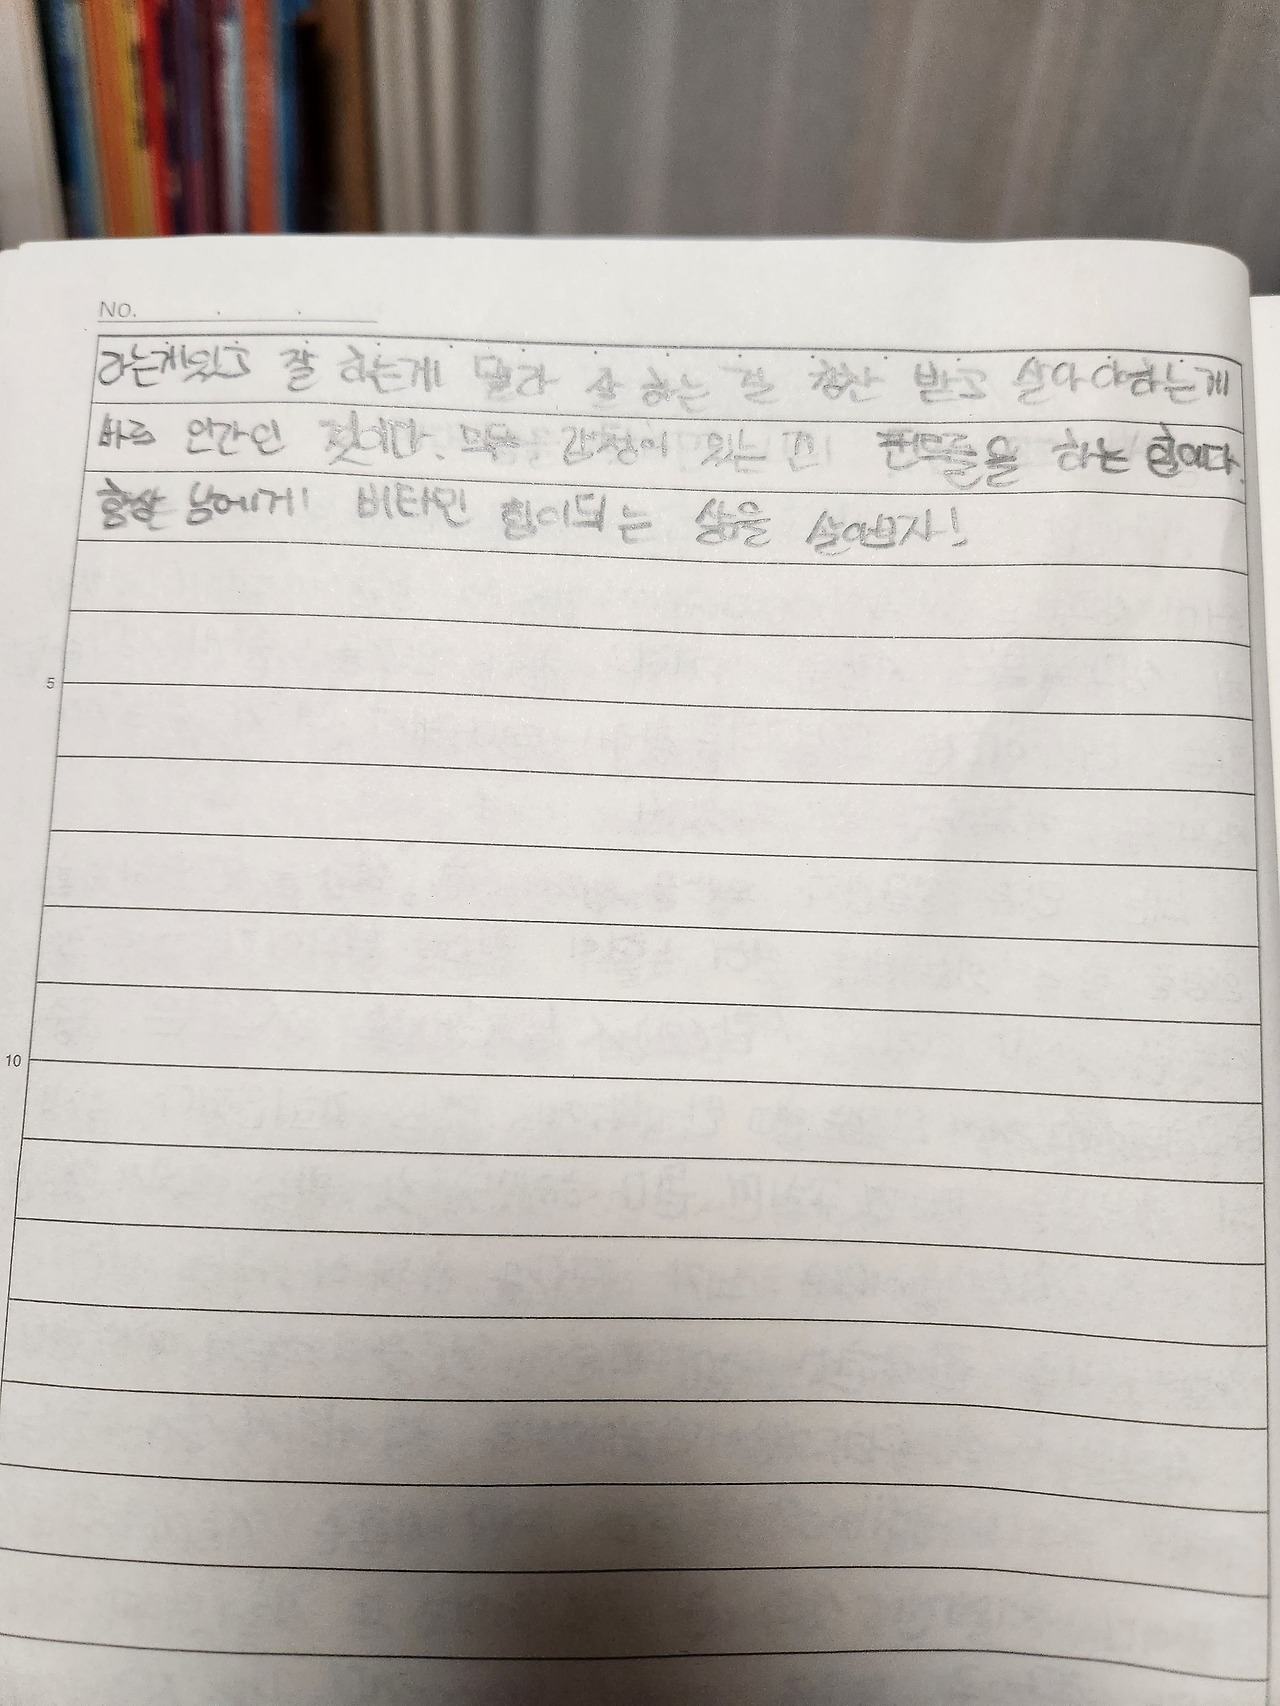 NO.
라는게있고 잘 하는게 달라 잘 하는 걸 칭찬 받고 살아야하는게
바로 인간인 것이다. 모두 감정이 있는 힘이다.
항상 남에게 비타민 힘이되는 삶을 살아보자!
5
10